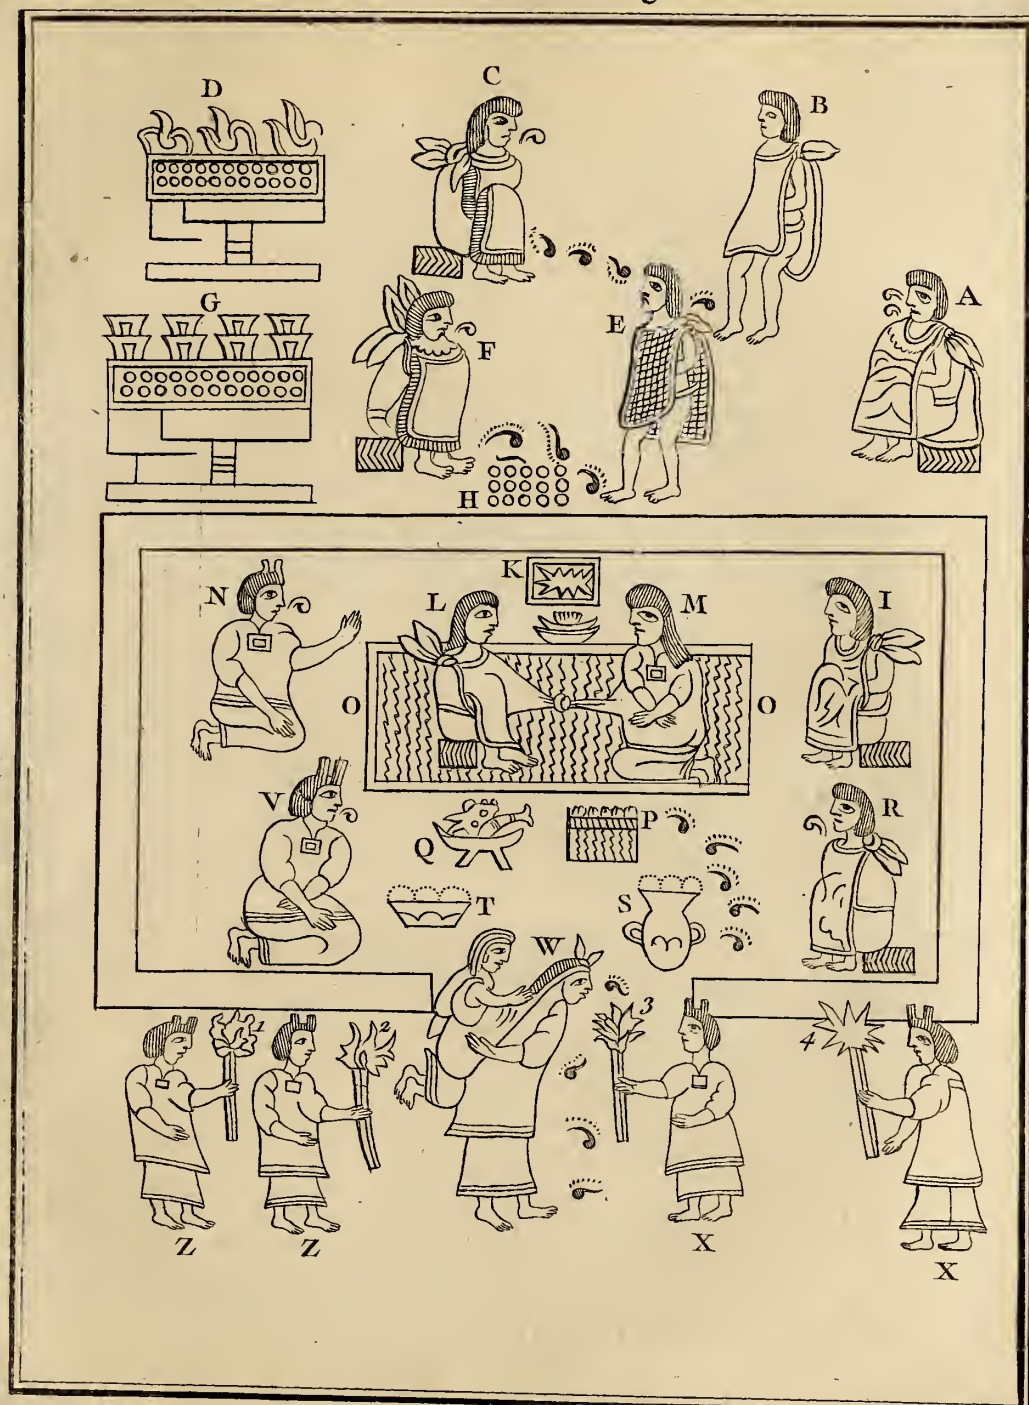 D
C
B
G
F
E
A
H
N
L
K
M
I
O
O
V
Q
P
R
T
S
W
1
2
3
4
Z
Z
X
X